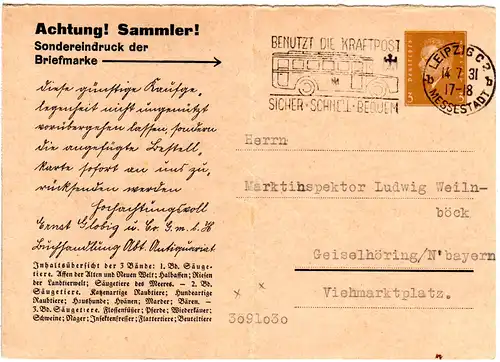 Achtung! Sammler!
Sondereindruck der
Briefmarke
diese günstige Kaufge-
legenheit nicht ungenützt
vorübergehen lassen, sondern
die angefügte Bestell-
karte sofort an uns zu-
rücksenden werden
Hochachtungsvoll
Ernst Globig u. Co. G.m.b.H
Buchhandlung Abt. Antiquariat
Inhaltsübersicht der 3 Bände: 1. Bd. Säuge-
tiere. Affen der Alten und Neuen Welt; Halbaffen; Riesen
der Landtierwelt; Säugetiere des Meeres. – 2. Bd.
Säugetiere. Katzenartige Raubtiere; Hundeartige
Raubtiere; Haushunde; Hyänen; Marder; Bären. –
3. Bd. Säugetiere. Flossenfüßer; Pferde; Wiederkäuer;
Schweine; Nager; Insektenfresser; Flattertiere; Beuteltiere
BENUTZT DIE KRAFTPOST
SICHER · SCHNELL · BEQUEM
LEIPZIG C2
14.7.31
17-18
MESSESTADT
Herrn
Marktinspektor Ludwig Weiln-
böck
Geiselhöring/N'bayern
Viehmarktplatz.
3o91o3o